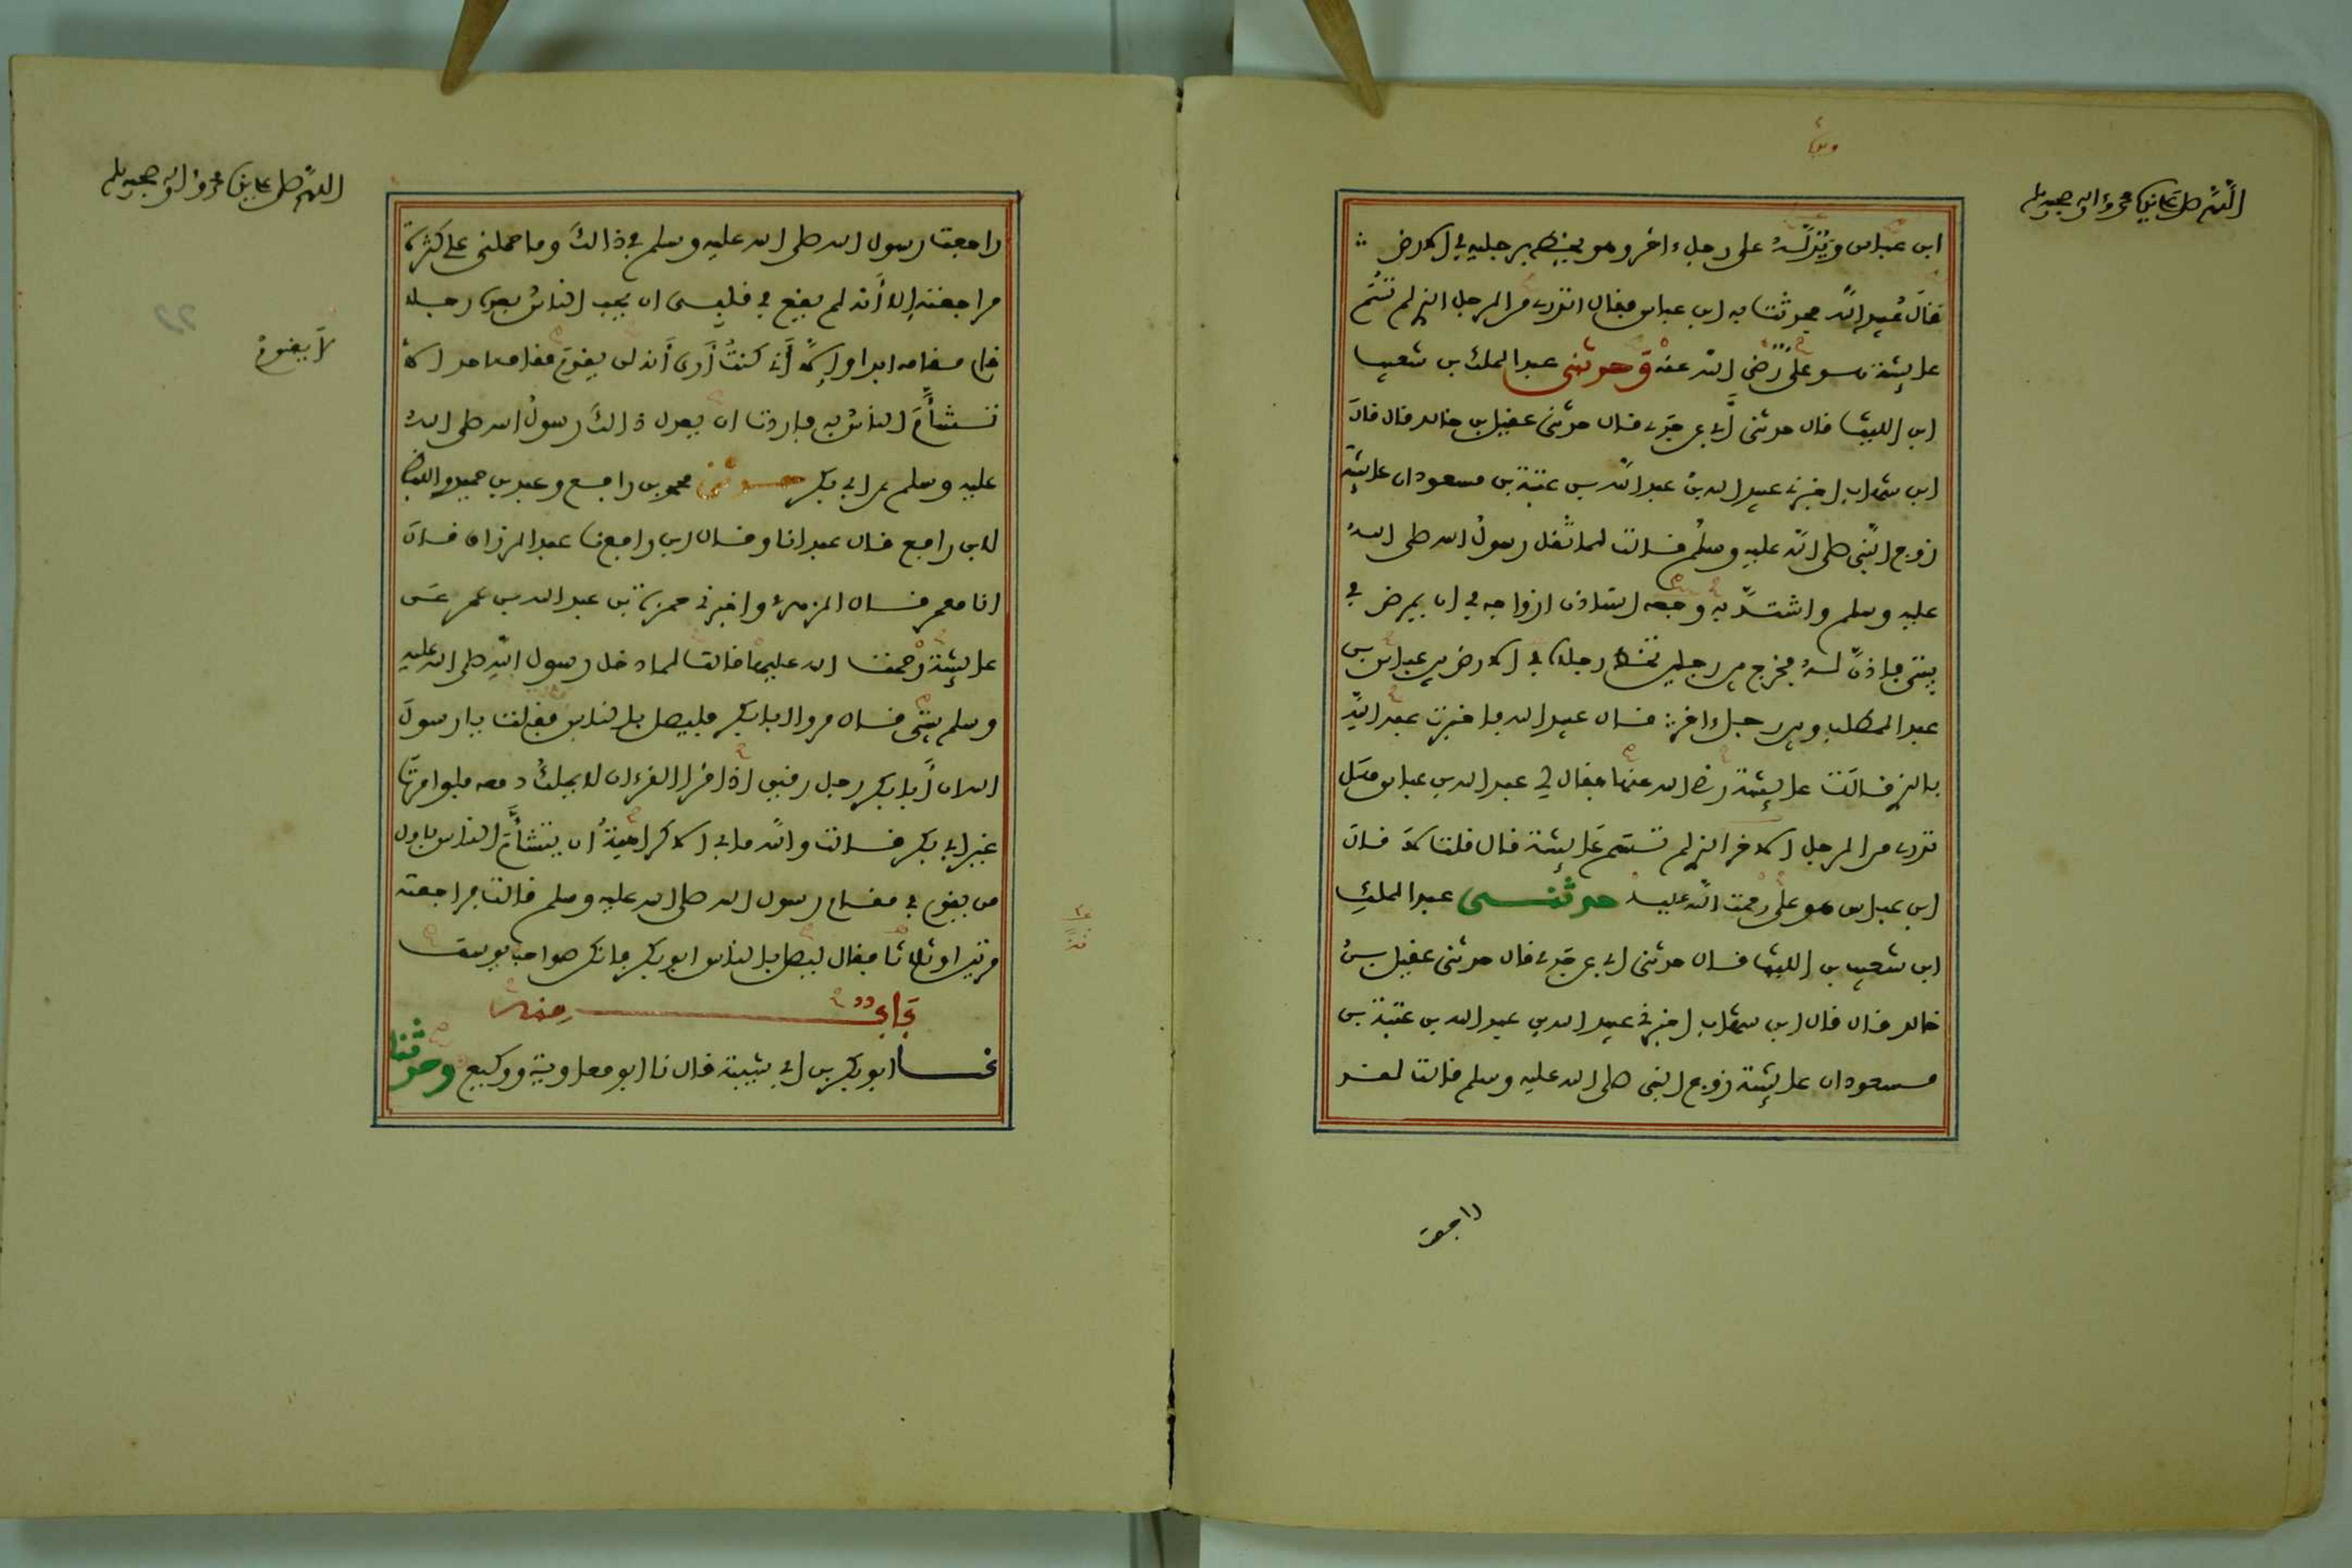 اللهم صل على نبينا محمد وءاله وصحبه وسلم
ابن عباس ويد له على رجل ءاخر وهو يخط برجليه في الارض
فقال عبيد الله فحدثت به ابن عباس فقال اتدرى من الرجل الذى لم تسم
عايشة هو على رضى الله عنه وحدثنى عبد الملك بن شعيب
ابن الليث قال حدثنى أبى عن جدى قال حدثنى عقيل بن خالد قال قال
ابن شهاب اخبرنى عبيد الله بن عبد الله بن عتبة بن مسعود ان عايشة
زوج النبى صلى الله عليه وسلم قالت لما ثقل رسول الله صلى الله
عليه وسلم واشتد به وجعه استاذن ازواجه في ان يمرض في
بيتى فاذن له فخرج بين رجلين تخط رجلاه في الارض بين عباس بن
عبد المطلب وبين رجل ءاخر قال عبيد الله فاخبرت عبد الله
بالذى قالت عايشة رضى الله عنها فقال لى عبد الله بن عباس هل
تدرى من الرجل الاخر الذى لم تسم عايشة قال قلت لا قال
ابن عباس هو على رحمت الله عليه حدثنى عبد الملك
ابن شعيب بن الليث قال حدثنى ابى عن جدى قال حدثنى عقيل بن
خالد قال قال ابن شهاب اخبرنى عبيد الله بن عبد الله بن عتبة بن
مسعود ان عايشة زوج النبى صلى الله عليه وسلم قالت لقد
راجعت
اللهم صل على نبينا محمد وءاله وصحبه وسلم
راجعت رسول الله صلى الله عليه وسلم في ذالك وما حملنى على كثرة
مراجعته إلا أنه لم يقع في قلبى ان يحب الناس بعده رجلا
قام مقامه ابدا وإلا أنى كنت أرى أنه لن يقوم مقامه احد الا
لا يقوم
تشأم الناس به فاردت ان يعدل ذالك رسول الله صلى الله
عليه وسلم عن ابى بكر حدثنى محمد بن رافع وعبد بن حميد واللفظ
لابن رافع قال عبد انا وقال ابن رافع نا عبد الرزاق قال
انا معمر قال الزهرى واخبرنى حمزة بن عبد الله بن عمر عن
عايشة رحمت الله عليها قالت لما دخل رسول الله صلى الله عليه
وسلم بيتى قال مروا ابا بكر فليصل بالناس فقلت يا رسول
الله ان أبا بكر رجل رقيق اذا قرا القرءان لا يملك دمعه فلو امرت
غير ابى بكر قالت والله ما بى الا كراهية ان يتشأم الناس باول
من يقوم في مقام رسول الله صلى الله عليه وسلم قالت فراجعته
مرتين او ثلاثا فقال ليصل بالناس ابو بكر فانكن صواحب يوسف
باب منه
نا ابو بكر بن ابى شيبة قال نا ابو معاوية ووكيع وحدثنا